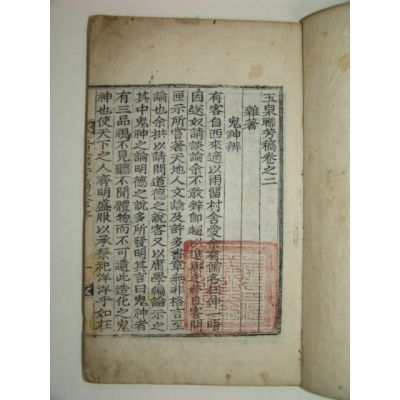 玉泉聯芳稿卷之二
雜著
鬼神辨
有客自西來適以雨留村舍愛余有菌名枉 一時
因送奴請談論余不敢辭即趨以進與之 見客開
匣示所嘗著天地人文論及許多書章無非格言至
論也余拱以請問道德之說客又以庸學編論示之
其中鬼神之論明德之說多所發明其言曰鬼神者
有三品視不見聽不聞體物而不可遺此造化之鬼
神也使天下之人齊明盛服以承祭祀洋洋乎如在